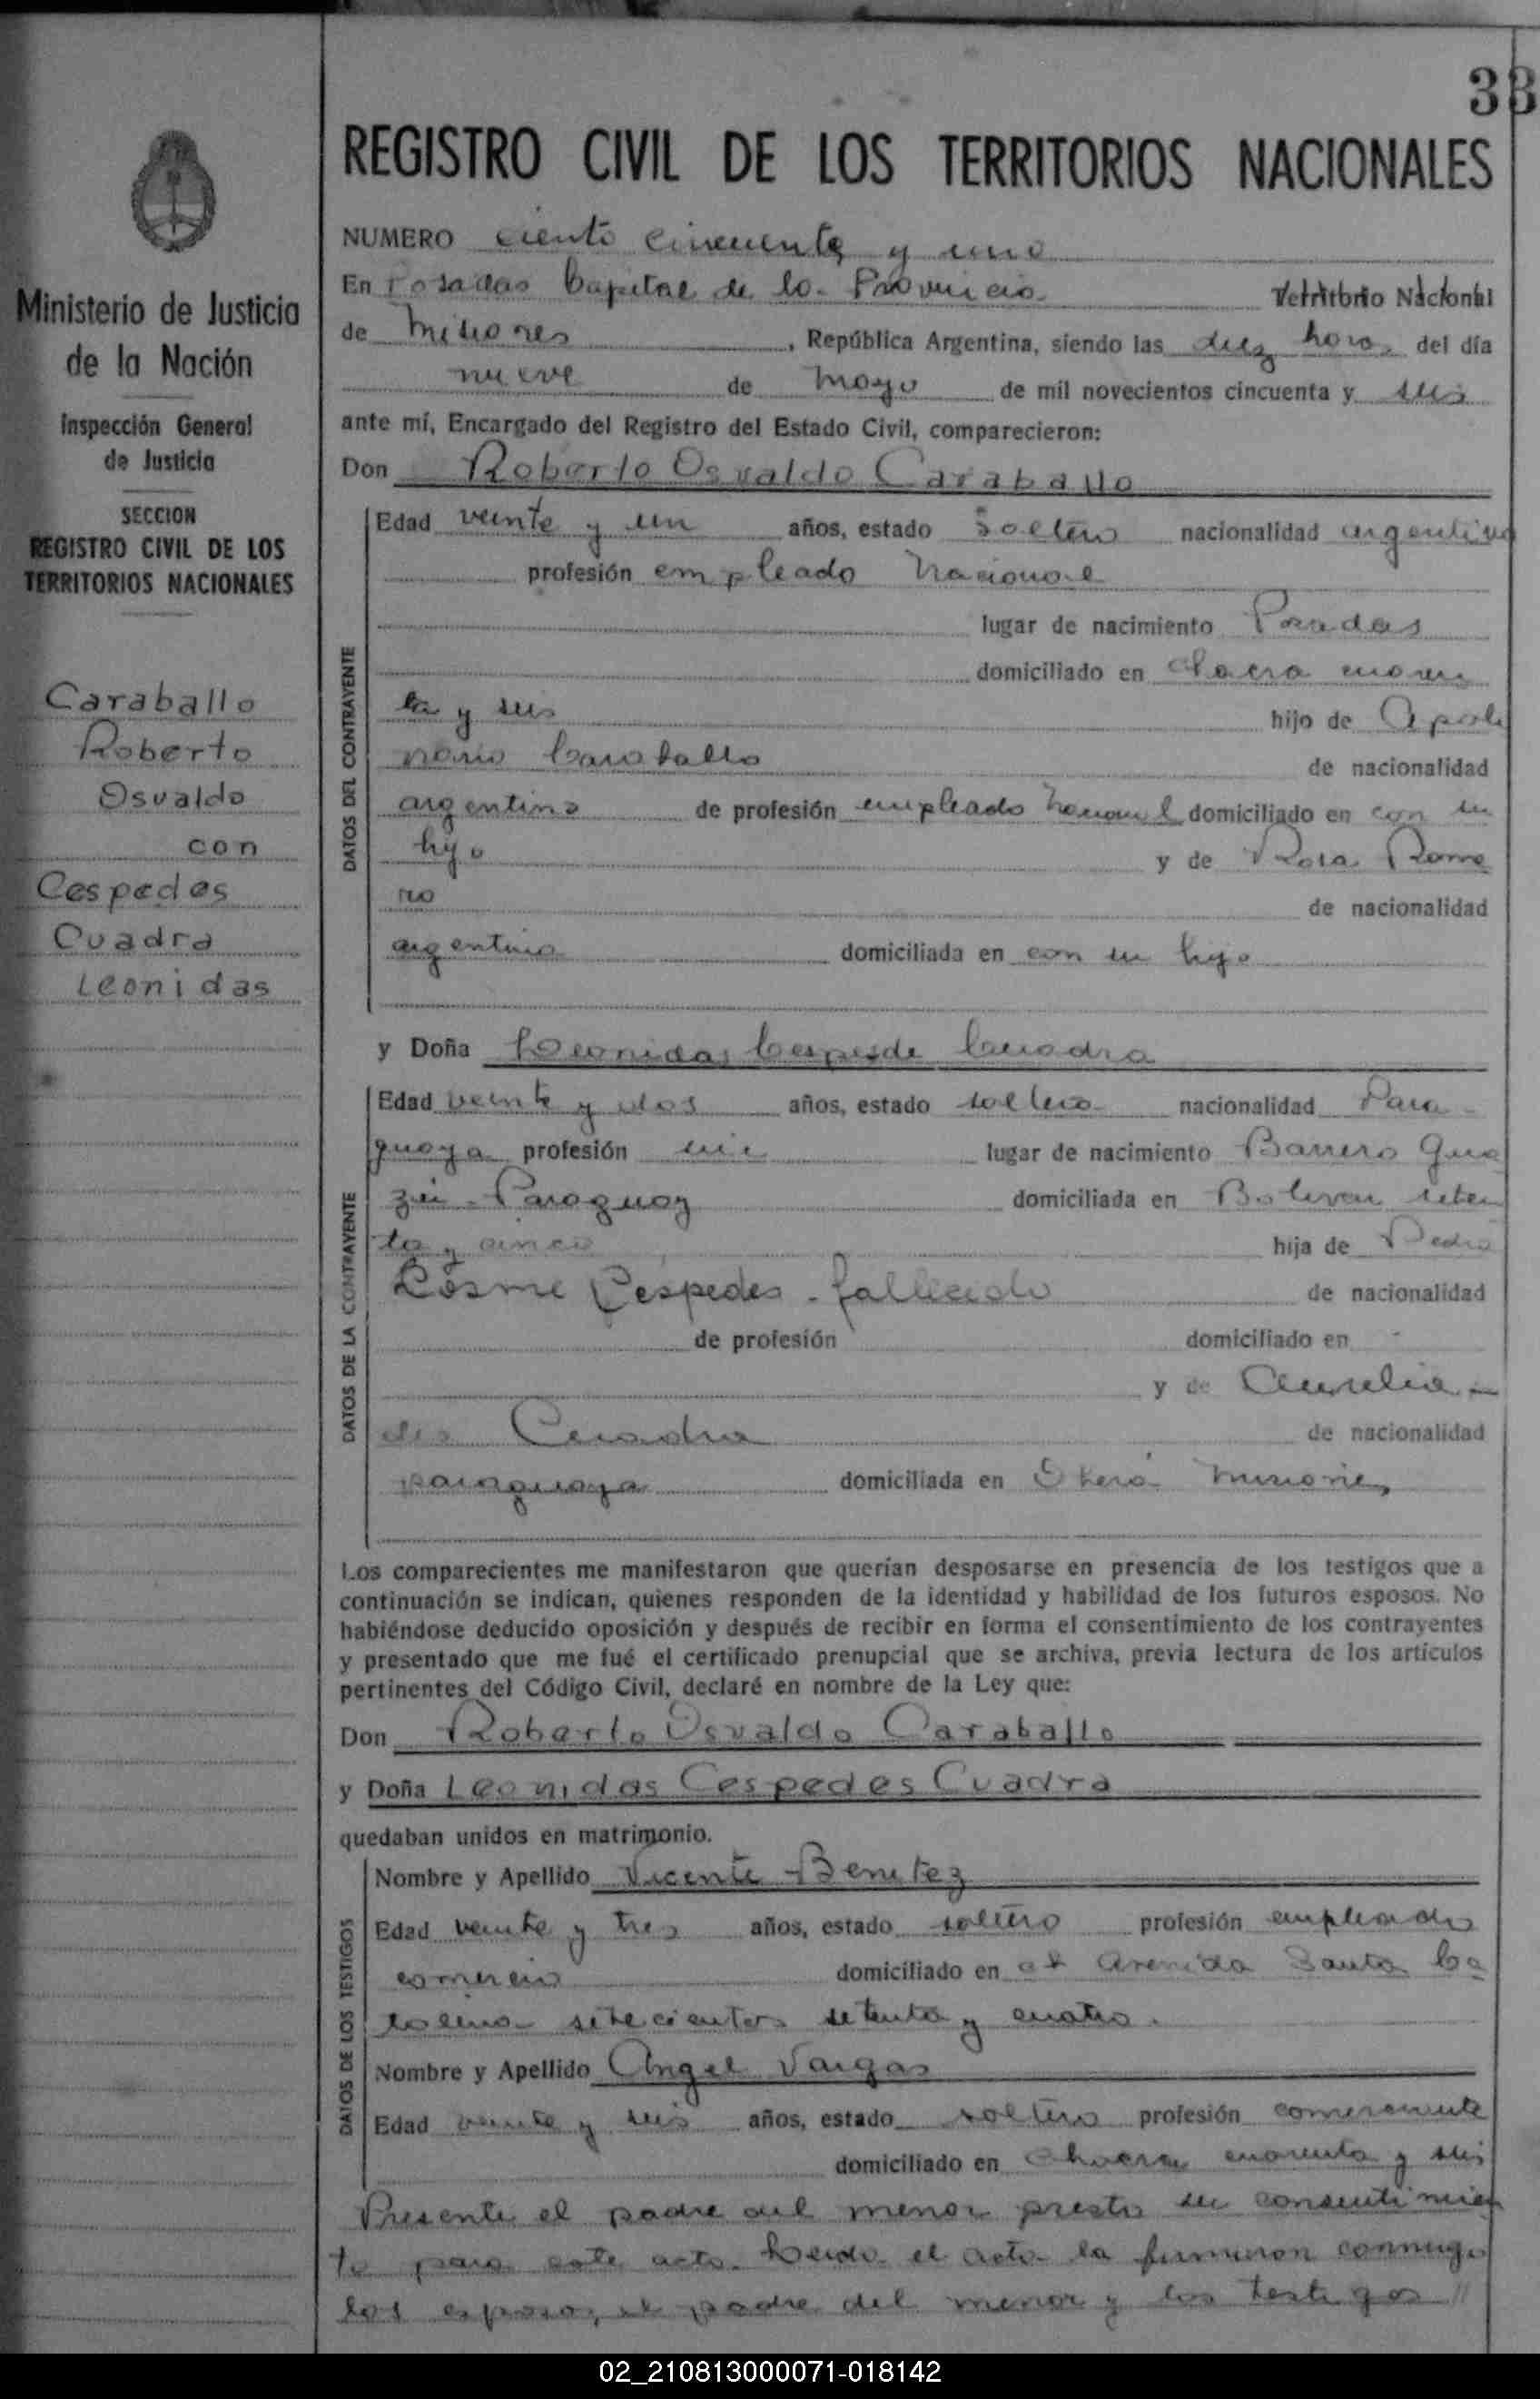 33
REGISTRO CIVIL DE LOS TERRITORIOS NACIONALES
NUMERO ciento cincuenta y uno
En Posadas Capital de la Provincia Territorio Nacional
de Misiones, República Argentina, siendo las diez horas del día
nueve de Mayo de mil novecientos cincuenta y seis
ante mí, Encargado del Registro del Estado Civil, comparecieron:
Don Roberto Osvaldo Caraballo
DATOS DEL CONTRAYENTE
Edad veinte y un años, estado soltero nacionalidad argentino
profesión empleado nacional
lugar de nacimiento Posadas
domiciliado en chacra cuaren
ta y seis hijo de Apoli
nario Caraballo de nacionalidad
argentino de profesión empleado nacional domiciliado en con su
hijo y de Rosa Rome
ro de nacionalidad
argentina domiciliada en con su hijo
y Doña Leonidas Cespede Cuadra
DATOS DE LA CONTRAYENTE
Edad veinte y dos años, estado soltera nacionalidad Para-
guaya profesión lugar de nacimiento Barrero Gua
zú - Paraguay domiciliada en Bolivar seten
ta y cinco hija de Pedro
Cosme Cespedes - fallecido de nacionalidad
de profesión domiciliado en -
y de Aurelia
Cuadra de nacionalidad
paraguaya domiciliada en Oberá Misiones
Los comparecientes me manifestaron que querían desposarse en presencia de los testigos que a
continuación se indican, quienes responden de la identidad y habilidad de los futuros esposos. No
habiéndose deducido oposición y después de recibir en forma el consentimiento de los contrayentes
y presentado que me fué el certificado prenupcial que se archiva, previa lectura de los artículos
pertinentes del Código Civil, declaré en nombre de la Ley que:
Don Roberto Osvaldo Caraballo
y Doña Leonidas Cespedes Cuadra
quedaban unidos en matrimonio.
DATOS DE LOS TESTIGOS
Nombre y Apellido Vicente Benitez
Edad veinte y tres años, estado soltero profesión empleado
comercio domiciliado en Avenida Santa Ca
talina setecientos setenta y cuatro.
Nombre y Apellido Angel Vargas
Edad veinte y seis años, estado soltero profesión comerciante
domiciliado en chacra cuarenta y seis
Presente el padre del menor presta su consentimien
to para este acto. Leida el acta la firmaron conmigo
los esposos, el padre del menor y los testigos //
Ministerio de Justicia
de la Nación
Inspección General
de Justicia
SECCION
REGISTRO CIVIL DE LOS
TERRITORIOS NACIONALES
Caraballo
Roberto
Osvaldo
con
Cespedes
Cuadra
Leonidas
02_210813000071-018142